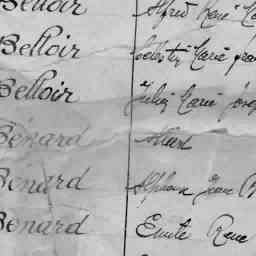 Belloir Alfred René
Belloir Célestin Marie
Belloir Julien Marie Joseph
Bénard Albert
Bénard Alphonse Jean B
Bénard Emile René